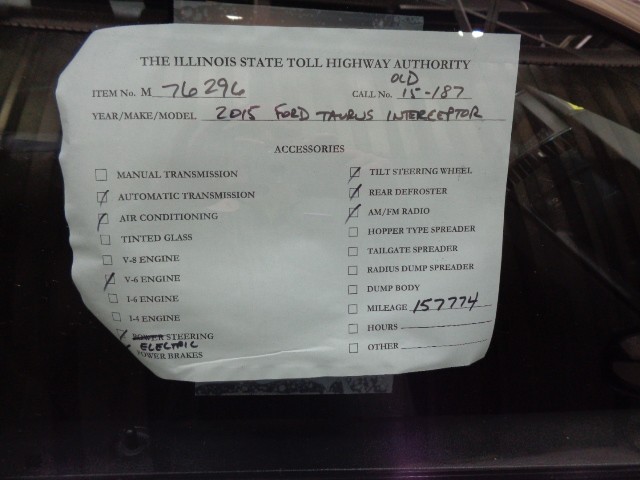 THE ILLINOIS STATE TOLL HIGHWAY AUTHORITY
OLD
ITEM No. M 76296 CALL No. 15-187
YEAR/MAKE/MODEL 2015 FORD TAURUS INTERCEPTOR
ACCESSORIES
MANUAL TRANSMISSION
AUTOMATIC TRANSMISSION
AIR CONDITIONING
TINTED GLASS
V-8 ENGINE
V-6 ENGINE
I-6 ENGINE
I-4 ENGINE
POWER STEERING
ELECTRIC
POWER BRAKES
TILT STEERING WHEEL
REAR DEFROSTER
AM/FM RADIO
HOPPER TYPE SPREADER
TAILGATE SPREADER
RADIUS DUMP SPREADER
DUMP BODY
MILEAGE 157774
HOURS
OTHER